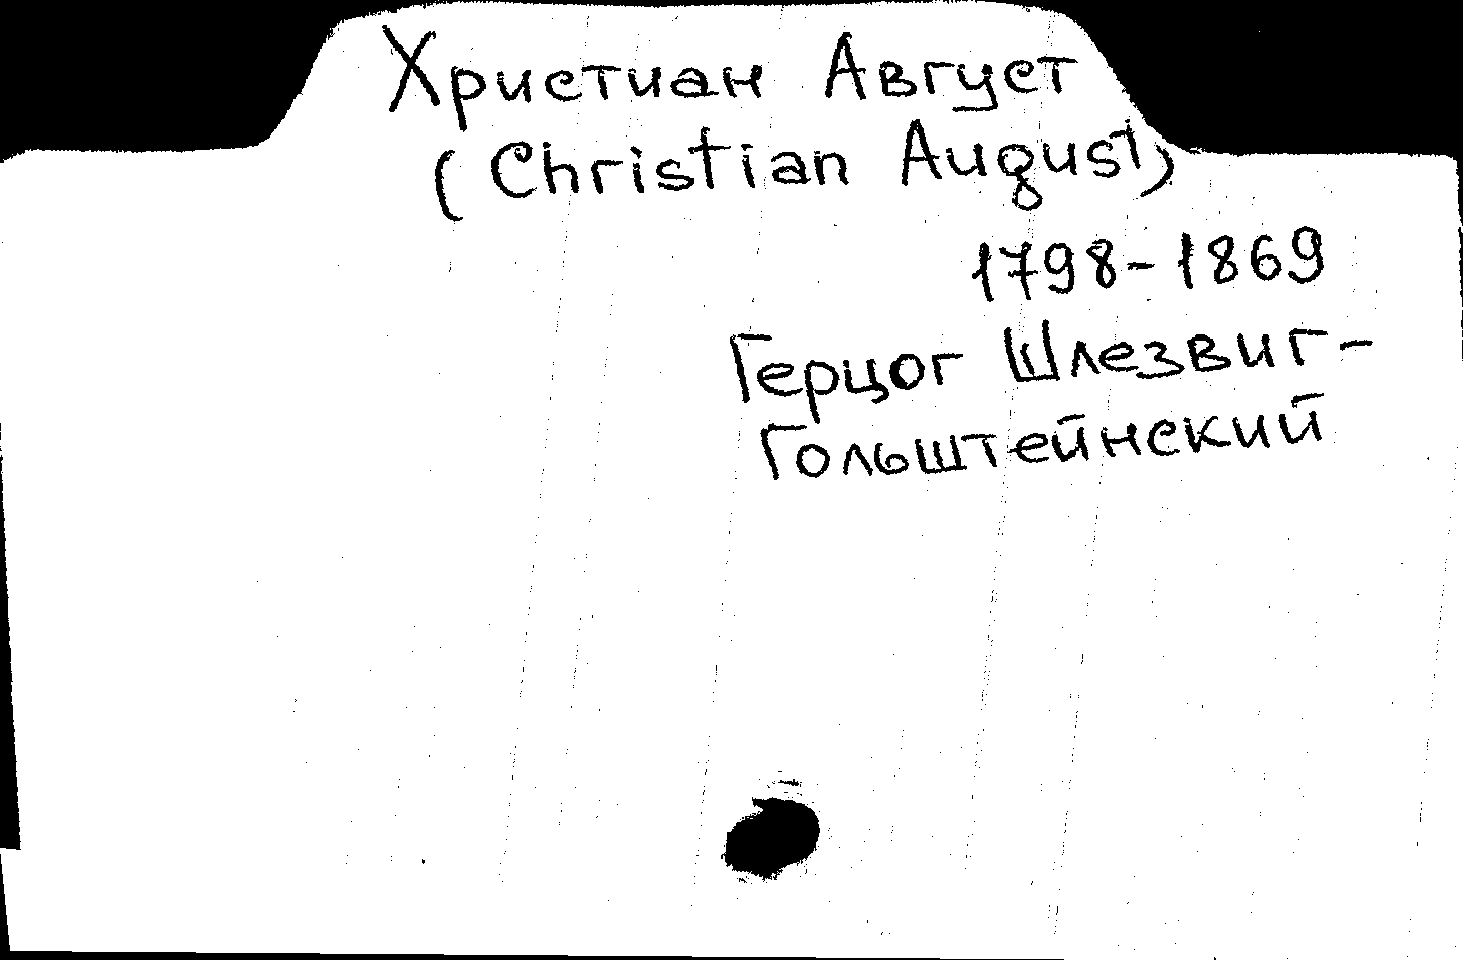 Христиан Август
(Christian August)
1798-1869
Герцог Шлезвиг-
Гольштейнский